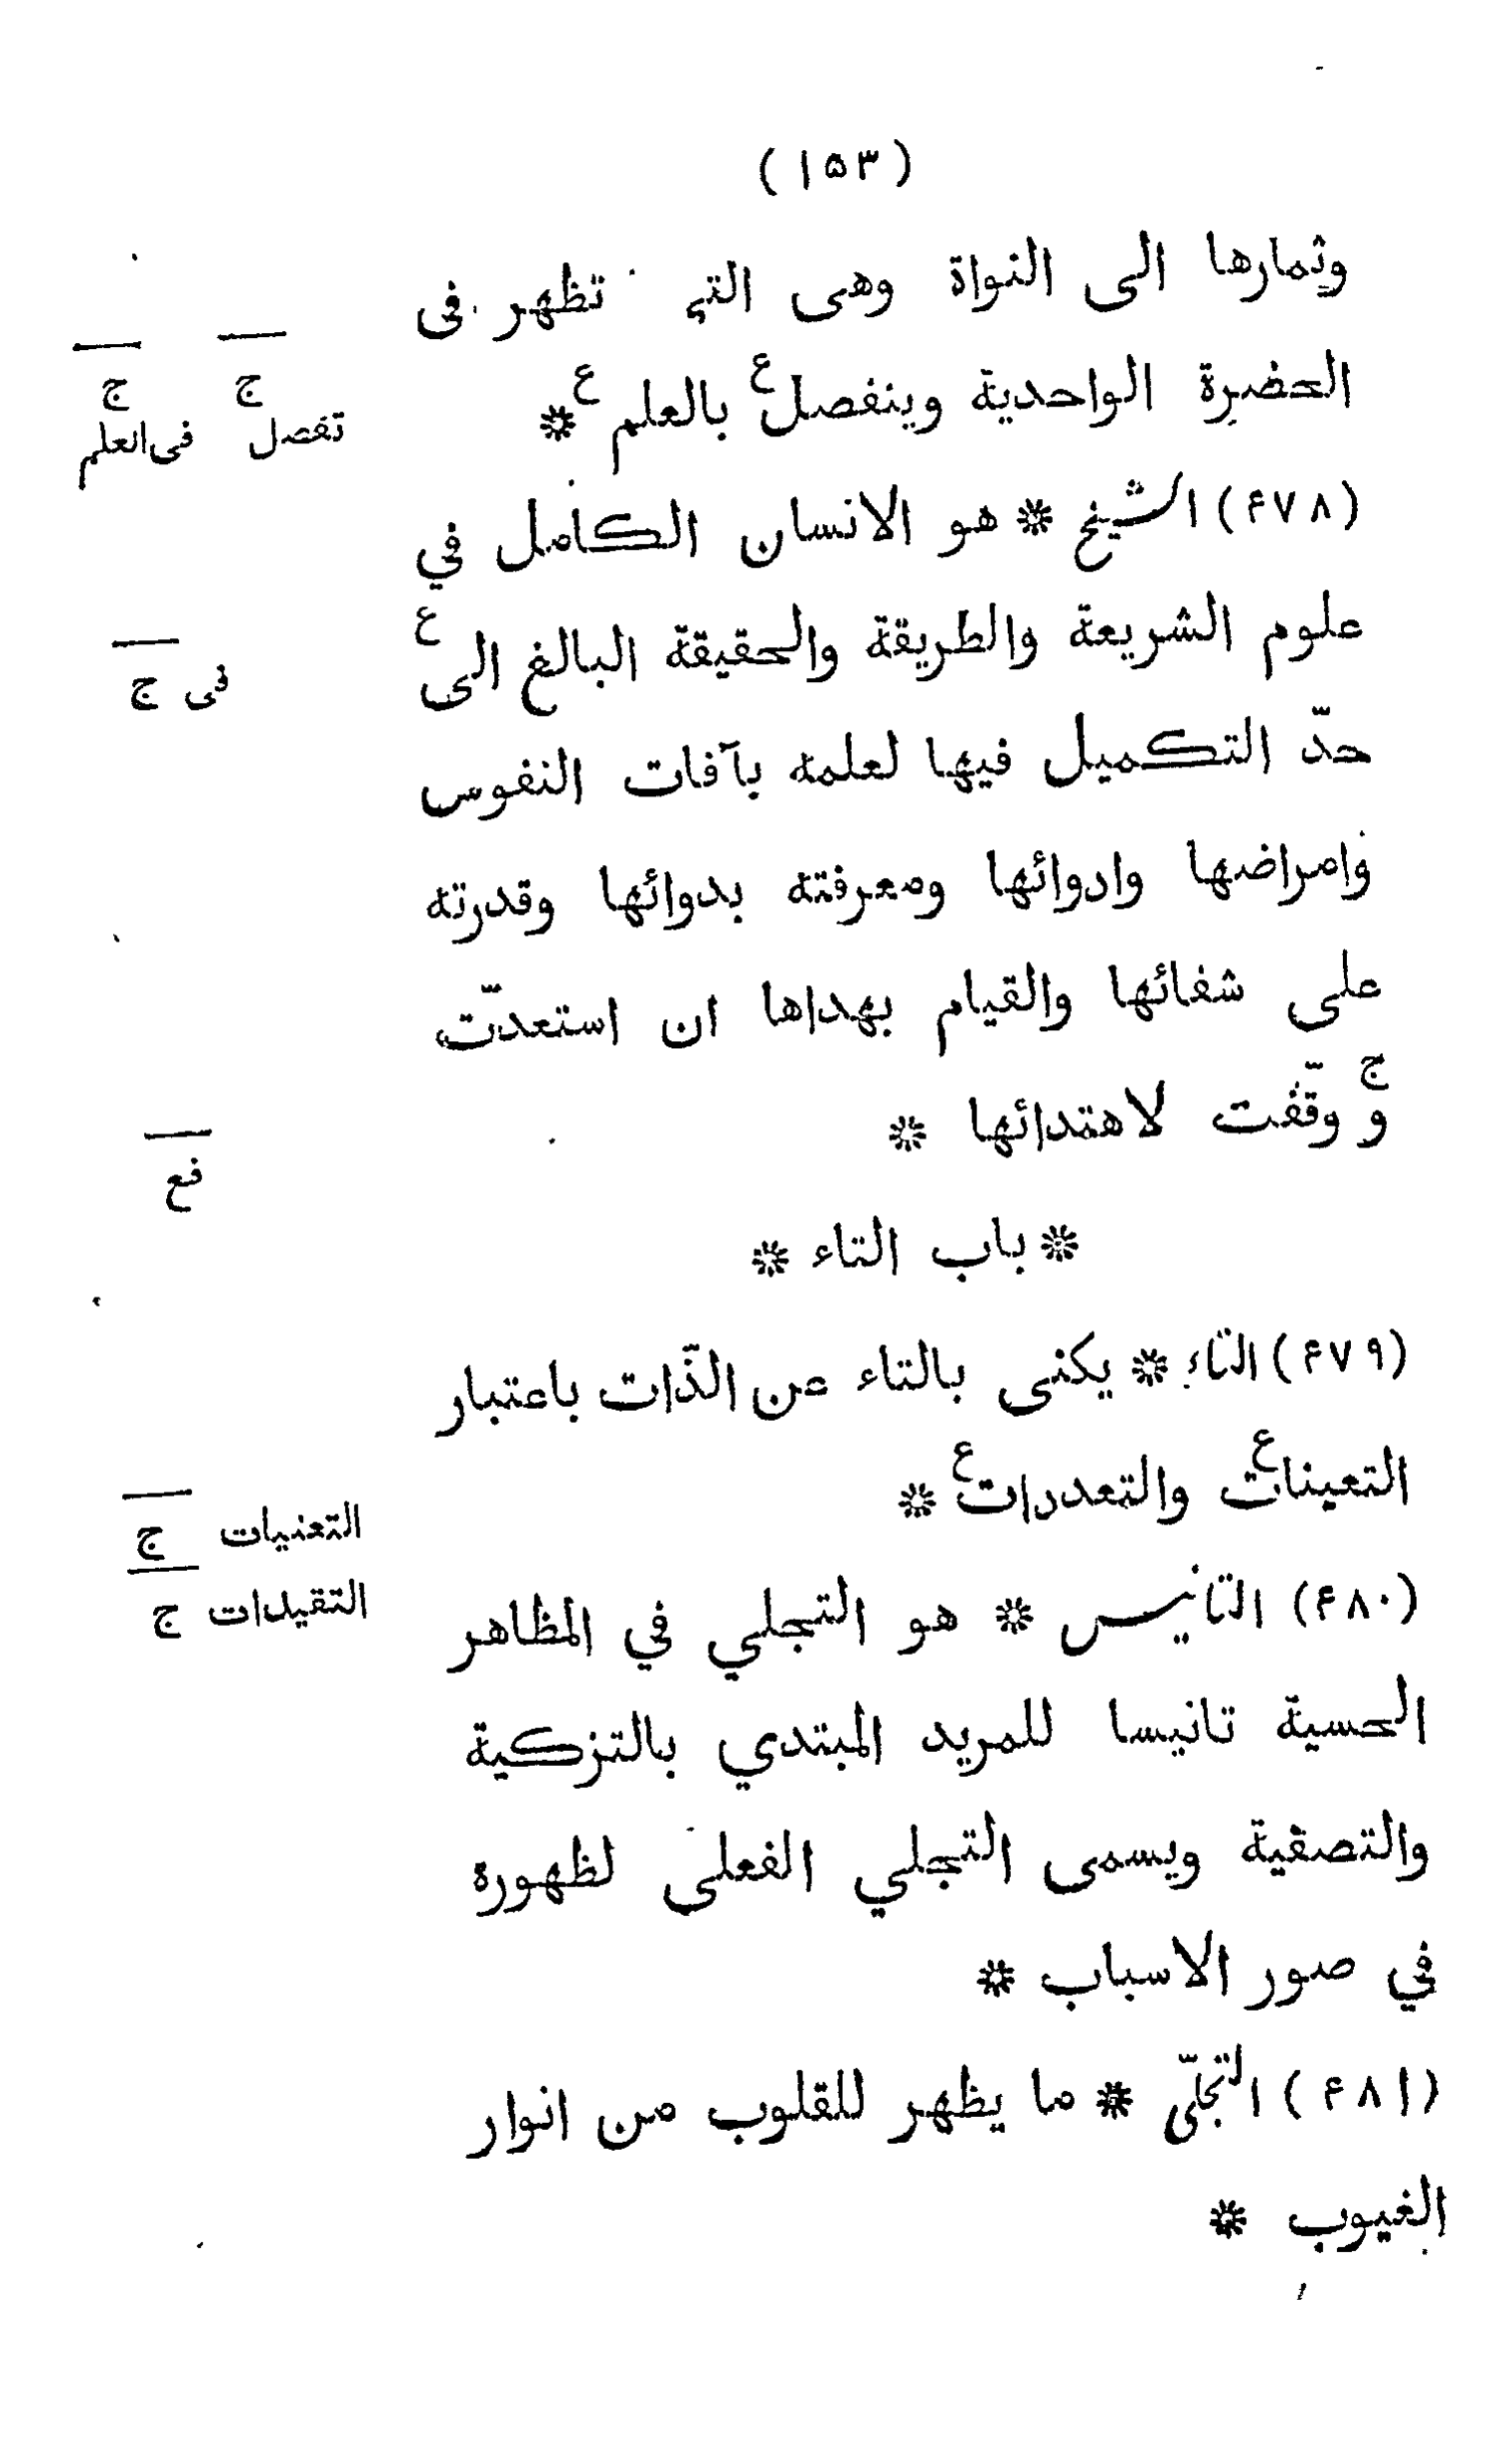 (۱۵۳)
وثمارها الى النواة وهى التي تظهر فى
الحضرة الواحدية وينفصل ع بالعلم ع *
ج ج
تفصل فى العلم
(۴۷۸) الشيخ * هو الانسان الكامل في
علوم الشريعة والطريقة والحقيقة البالغ الى ع
فى ج
حدّ التكميل فيها لعلمه بآفات النفوس
وامراضها وادوائها ومعرفته بدوائها وقدرته
على شفائها والقيام بهداها ان استعدّت
و ج وقّفت لاهتدائها *
فع
* باب التاء *
(۴۷۹) التاء * يكنى بالتاء عن الذّات باعتبار
التعينات ع والتعددات ع *
التعنيات ج
التقيدات ج
(۴۸۰) التانيس * هو التجلي في المظاهر
الحسية تانيسا للمريد المبتدي بالتزكية
والتصفية ويسمى التجلي الفعلى لظهوره
في صور الاسباب *
(۴۸۱) التجلّى * ما يظهر للقلوب من انوار
الغيوب *